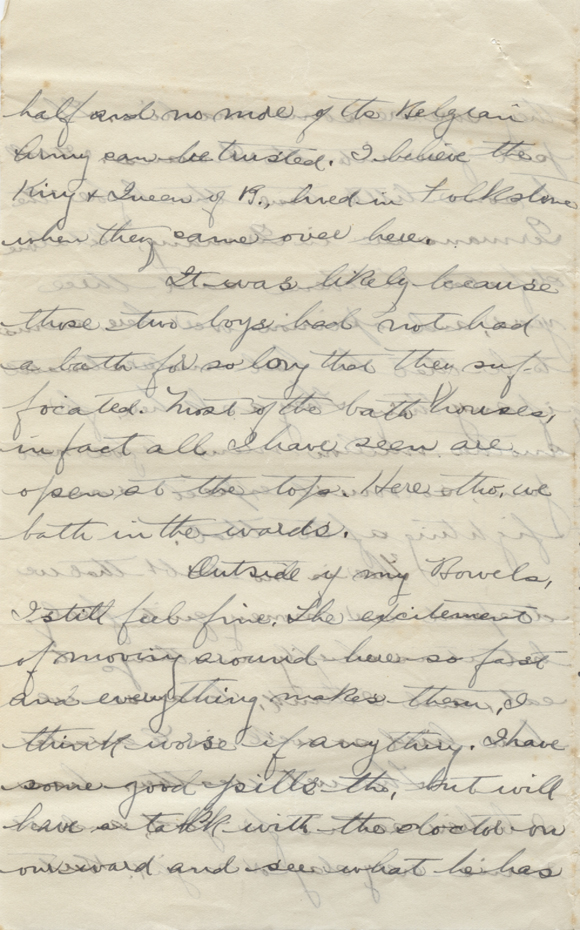 half and no more of the Belgian
Army can be trusted. I believe the
King & Queen of B., lived in Folkstone
when they came over here.
It was likely because
those two boys bad not had
a bath for so long that they suf-
focated. Most of the bath houses,
in fact all I have seen are
open at the tops. Here tho, we
bath in the wards.
Outside of my Bowels,
I still feel fine. The excitement
of moving around here so fast
and everything, makes them, I
think worse if anything. I have
some good pills tho, but will
have a talk with the doctor on
our ward and see what he has